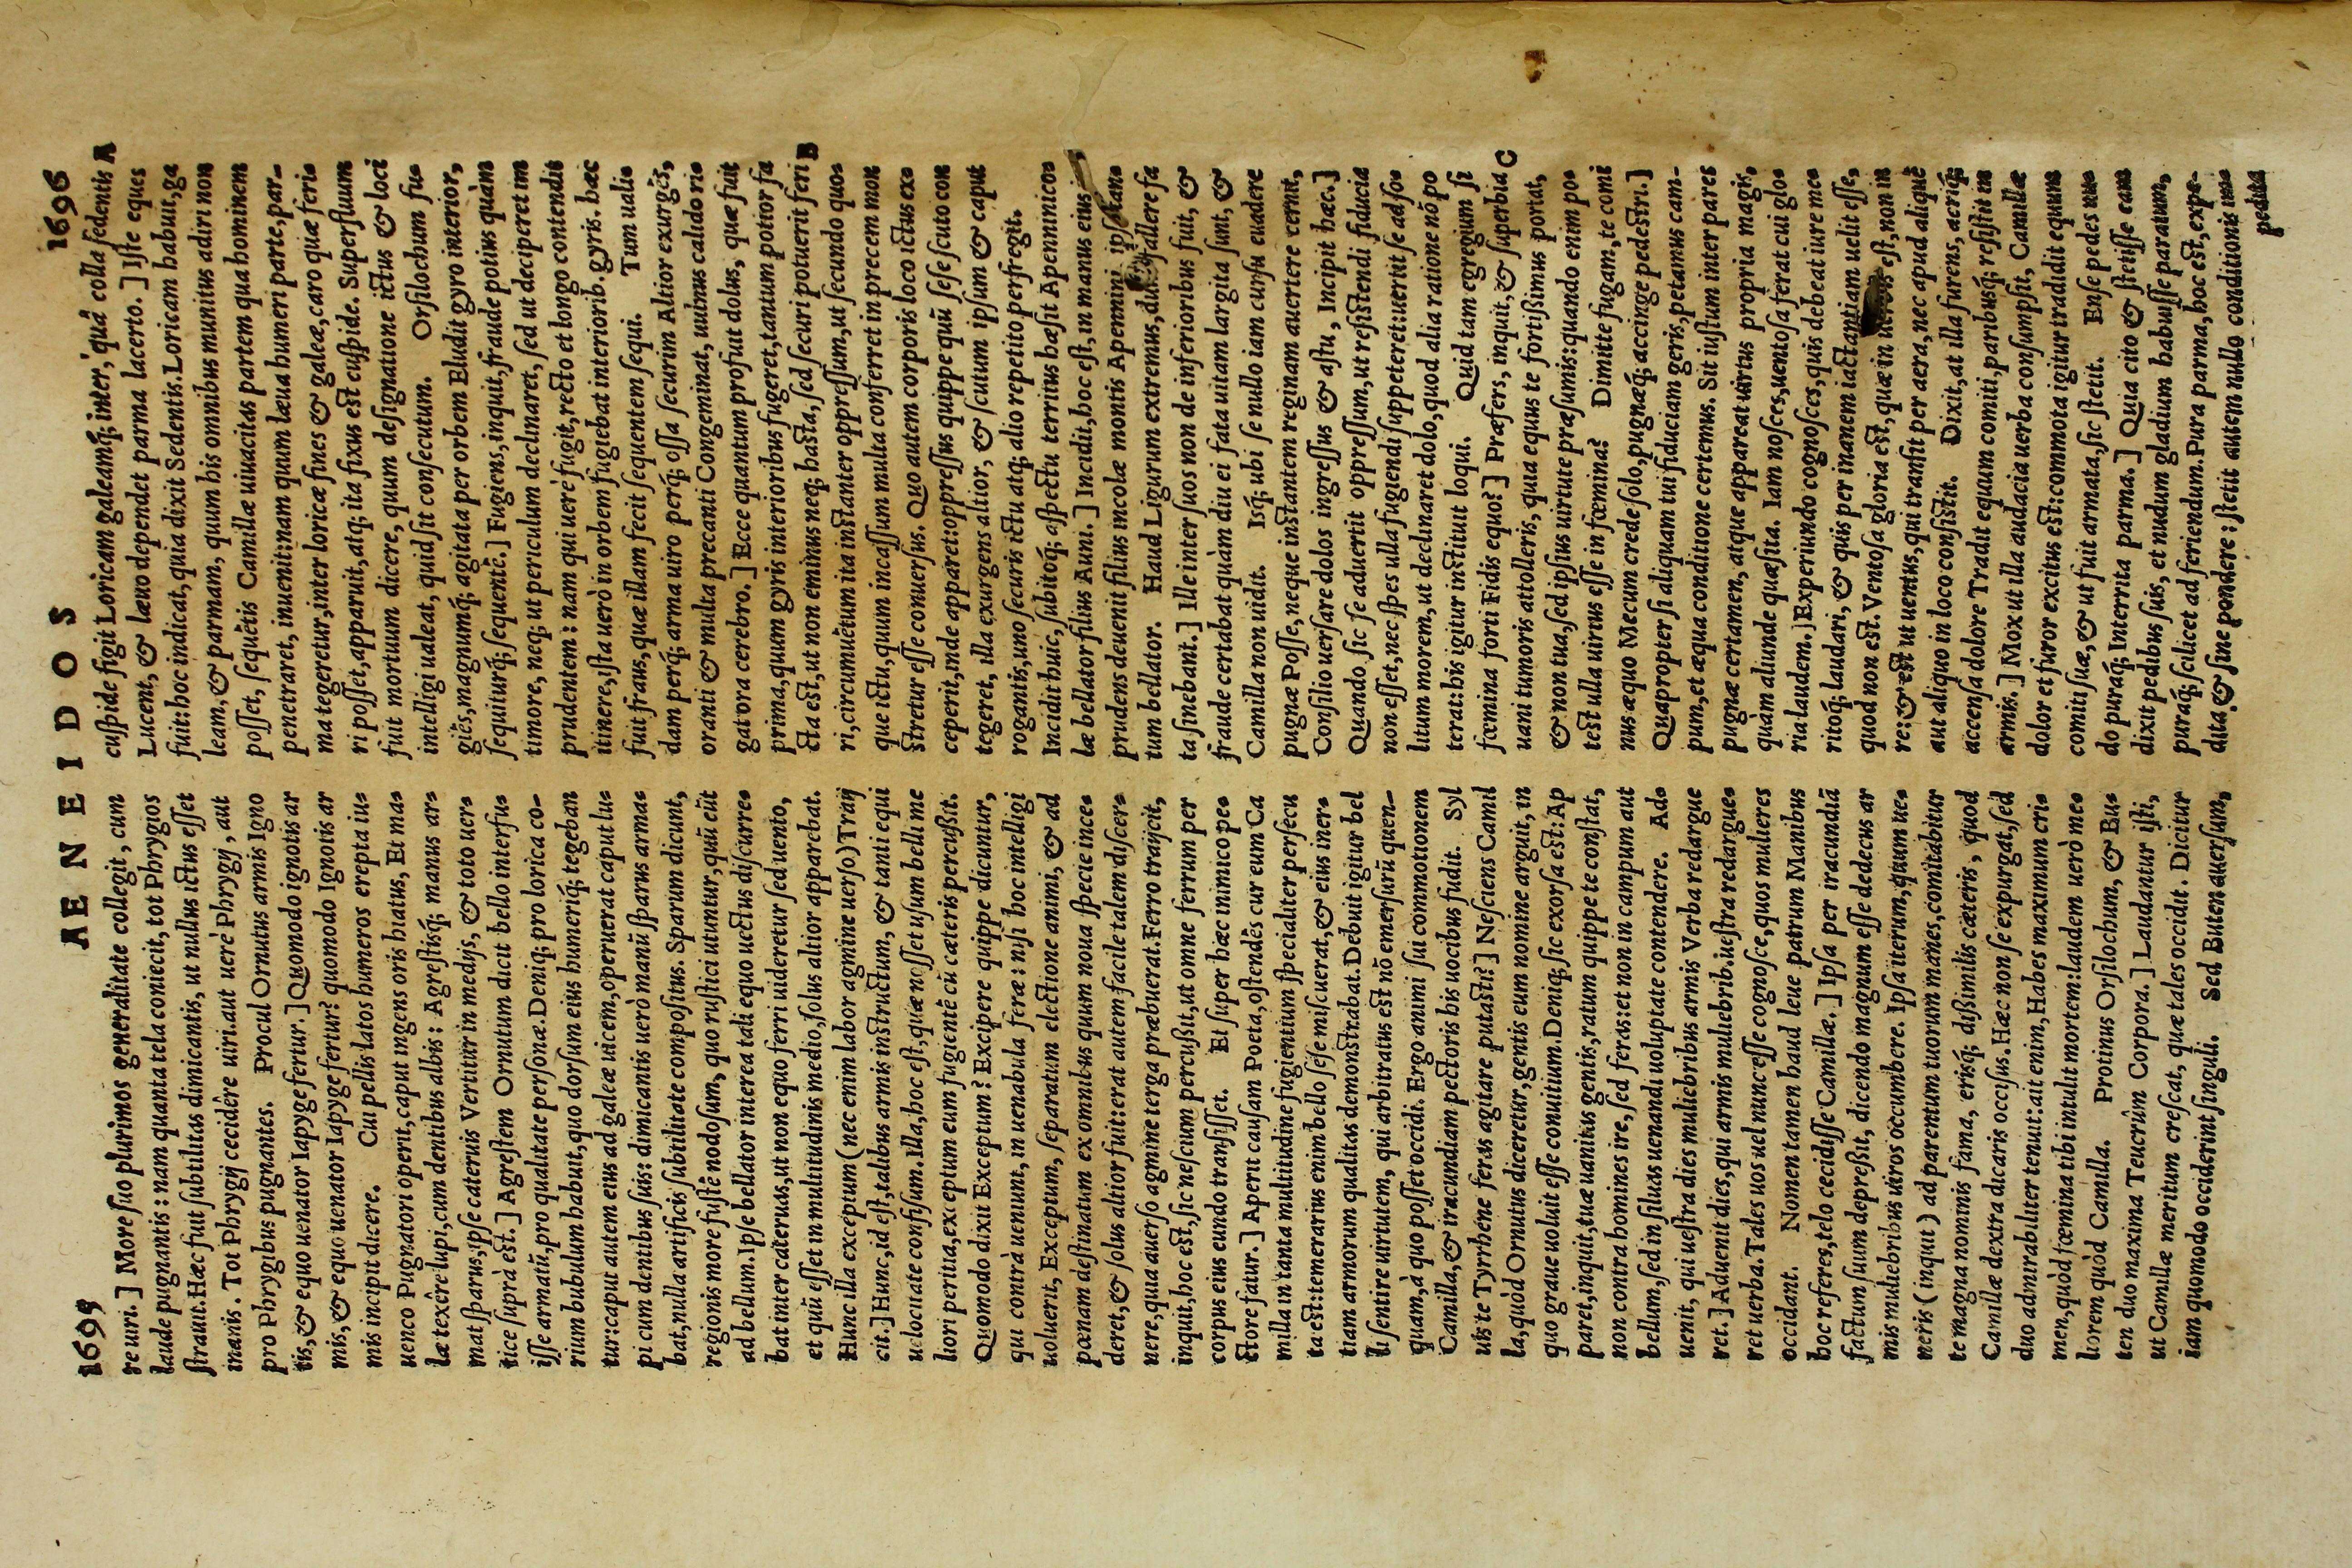 1695
AENEIDOS
1696
re uiri.] More ſuo plurimos generalitate collegit, cum
laude pugnantis: nam quanta tela coniecit, tot Phrygios
ſtrauit. Hæc fuit ſubtilitas dimicantis, ut nullus ictus eſſet
inanis. Tot Phrygij cecidêre uiri. aut uere Phrygij, aut
pro Phrygibus pugnantes. Procul Ornutus armis Igno
tis, & equo uenator Iapyge fertur.] Quomodo ignotis ar
mis, & equo uenator Iapyge fertur? quomodo Ignotis ar
mis incipit dicere. Cui pellis latos humeros erepta iu-
uenco Pugnatori operit, caput ingens oris hiatus, Et ma-
læ texêre lupi, cum dentibus albis: Agreſtisq; manus ar-
mat ſparus, ipſe cateruis Vertitur in medijs, & toto uer-
tice ſuprà est.] Agreſtem Ornutum dicit bello interfu-
iſſe armatũ, pro qualitate perſonæ. Deniq; pro lorica co-
rium bubulum habuit, quo dorſum eius humeriq; tegeban
tur: caput autem eius ad galeæ uicem, operuerat caput lu-
pi cum dentibus ſuis: dimicantis uerò manũ ſparus arma-
bat, nulla artificis ſubtilitate compoſitus. Sparum dicunt,
regionis more fuſtẽ nodoſum, quo ruſtici utuntur, quũ eũt
ad bellum. Ipſe bellator interea tali equo uectus diſcurre-
bat inter cateruas, ut non equo ferri uideretur ſed uento,
et quũ eſſet in multitudinis medio, ſolus altior apparebat.
Hunc illa exceptum (nec enim labor agmine uerſo) Traij
cit.] Hunc, id eſt, talibus armis inſtructum, & tanti equi
uelocitate confiſum. Illa, hoc eſt, quæ noſſet uſum belli me
liori peritia, exceptum eum fugientẽ cũ cæteris percußit.
Quomodo dixit Exceptum? Excipere quippe dicuntur,
qui contrà uenunt, in uenabula feræ: niſi hoc intelligi
uoluerit, Exceptum, ſeparatum electione animi, & ad
pœnam deſtinatum ex omnibus quum noua ſpecie ince-
deret, & ſolus altior fuit: erat autem facile talem diſcer-
nere, qua auerſo agmine terga præbuerat. Ferro traijcit,
inquit, hoc est, ſic neſcium percußit, ut omne ferrum per
corpus eius eundo tranſiſſet. Et ſuper hæc inimico pe-
ctore fatur.] Aperit cauſam Poeta, oſtendẽs cur eum Ca
milla in tanta multitudine fugientium ſpecialiter perſecu
ta est: temerarius enim bello ſeſe miſcuerat, & eius iner-
tiam armorum qualitas demonſtrabat. Debuit igitur bel
li ſentire uirtutem, qui arbitratus est nõ emerſurũ quen-
quam, à quo poſſet occidi. Ergo animi ſui commotionem
Camilla, & iracundiam pectoris his uocibus fudit. Syl
uis te Tyrrhene feras agitare putaſti?] Neſciens Camil
la, quòd Ornutus diceretur, gentis eum nomine arguit, in
quo graue uoluit eſſe conuitium. Deniq; ſic exorſa est: Ap
paret, inquit, tuæ uanitas gentis, ratum quippe te conſtat,
non contra homines ire, ſed feras: et non in campum aut
bellum, ſed in ſiluas uenandi uoluptate contendere. Ad-
uenit, qui ueſtra dies muliebribus armis Verba redargue
ret.] Aduenit dies, qui armis muliebrib. ueſtra redargue-
ret uerba. Tales uos uel nunc eſſe cognoſce, quos mulieres
occidant. Nomen tamen haud leue patrum Manibus
hoc referes, telo cecidiſſe Camillæ.] Ipſa per iracundiã
factum ſuum depreßit, dicendo magnum eſſe dedecus ar
mis muliebribus uiros occumbere. Ipſa iterum, quum ue-
neris (inquit) ad parentum tuorum manes, comitabitur
te magna nominis fama, erisq; dißimilis cæteris, quod
Camillæ dextra dicaris occiſus. Hæc non ſe expurgat, ſed
duo admirabiliter tenuit: ait enim, Habes maximum cri-
men, quòd fœmina tibi intulit mortem: laudem uerò me-
liorem quòd Camilla. Protinus Orſilochum, & Bu-
ten duo maxima Teucrûm Corpora.] Laudantur iſti,
ut Camillæ meritum creſcat, quæ tales occidit. Dicitur
iam quomodo occiderint ſinguli. Sed Buten auerſum,
cuſpide figit Loricam galeamq; inter, quà colla ſedentis A
Lucent, & læuo dependet parma lacerto.] Iſte eques
fuit: hoc indicat, quia dixit Sedentis. Loricam habuit, ga
leam, & parmam, quum his omnibus munitus adiri non
poſſet, ſequẽtis Camillæ uiuacitas partem qua hominem
penetraret, inuenit: nam quum læua humeri parte, par-
ma tegeretur, inter loricæ fines & galeæ, caro quæ feri-
ri poſſet, apparuit, atq; ita fixus est cuſpide. Superfluum
fuit mortuum dicere, quum deſignatione ictus & loci
intelligi ualeat, quid ſit conſecutum. Orſilochum fu-
giẽs, magnumq; agitata per orbem Eludit gyro interior,
ſequiturq; ſequentẽ.] Fugiens, inquit, fraude potius quàm
timore, neq; ut periculum declinaret, ſed ut deciperet im
prudentem: nam qui uerè fugit, recto et longo contendit
itinere, iſta uerò in orbem fugiebat interiorib. gyris. hæc
fuit fraus, quæ illam fecit ſequentem ſequi. Tum uali-
dam perq; arma uiro perq; oſſa ſecurim Altior exurgẽs,
oranti & multa precanti Congeminat, uulnus calido ri-
gat ora cerebro.] Ecce quantum profuit dolus, quæ fuit
prima, quem gyris interioribus fugeret, tantum potior fa
cta est, ut non eminus neq; haſta, ſed ſecuri potuerit feri B
ri, circumuẽtum ita inſtanter oppreſſum, ut ſecundo quo-
que ictu, quum incaſſum multa conferret in precem mon
ſtretur eſſe conuerſus. Quo autem corporis loco ictus ex-
ceperit, inde apparet: oppreſſus quippe quũ ſeſe ſcuto con
tegeret, illa exurgens altior, & ſcutum ipſum & caput
rogantis, uno ſecuris ictu atq; alio repetito perfregit.
Incidit huic, ſubitoq; aſpectu territus hæſit Apenninico-
læ bellator filius Auni.] Incidit, hoc eſt, in manus eius
prudens deuenit filius incolæ montis Apennini,
tum bellator. Haud Ligurum extremus, fallere fa
ta ſinebant.] Ille inter ſuos non de inferioribus fuit, &
fraude certabat quàm diu ei fata uitam largita ſunt, &
Camilla non uidit. Iſq; ubi ſe nullo iam curſu euadere
pugnæ Poſſe, neque inſtantem reginam auertere cernit,
Conſilio uerſare dolos ingreſſus & aſtu, Incipit hæc.]
Quando ſic ſe aduertit oppreſſum, ut reſiſtendi fiducia
non eſſet, nec ſpes ulla fugiendi ſuppeteret: uertit ſe ad ſo-
litum morem, ut declinaret dolo, quod alia ratione nõ po
terat: his igitur inſtituit loqui. Quid tam egregium ſi
fœmina forti Fidis equo?] Præfers, inquit, & ſuperbia C
uani tumoris attolleris, quia equus te fortißimus portat,
& non tua, ſed ipſius uirtute præſumis: quando enim po-
test ulla uirtus eſſe in fœmina? Dimitte fugam, te comi
nus æquo Mecum crede ſolo, pugnæq; accinge pedeſtri.]
Quapropter ſi aliquam tui fiduciam geris, petamus cam-
pum, et æqua conditione certemus. Sit iuſtum inter pares
pugnæ certamen, atque appareat uirtus propria magis,
quàm aliunde quæſita. Iam noſces, uentoſa ferat cui glo-
ria laudem.] Experiundo cognoſces, quis debeat iure me-
ritoq; laudari, & quis per inanem iactantiam uelit eſſe,
quod non est. Ventoſa gloria est, quæ in est, non in
re: & est ut uentus, qui tranſit per aera, nec apud aliquẽ
aut aliquo in loco conſiſtit. Dixit, at illa furens, acriq;
accenſa dolore Tradit equum comiti, paribusq; reſiſtit in
armis.] Mox ut illa audacia uerba conſumpſit, Camillæ
dolor et furor excitus est: commota igitur tradidit equum
comiti ſuæ, & ut fuit armata, ſic ſtetit. Enſe pedes nu-
do puraq; Interrita parma.] Quia cito & ſtetiſſe eam
dixit pedibus ſuis, et nudum gladium habuiſſe paratum,
puraq; ſcilicet ad feriendum. Pura parma, hoc est, expe-
dita, & ſine pondere: ſtetit autem nullo conditionis im-
pedita